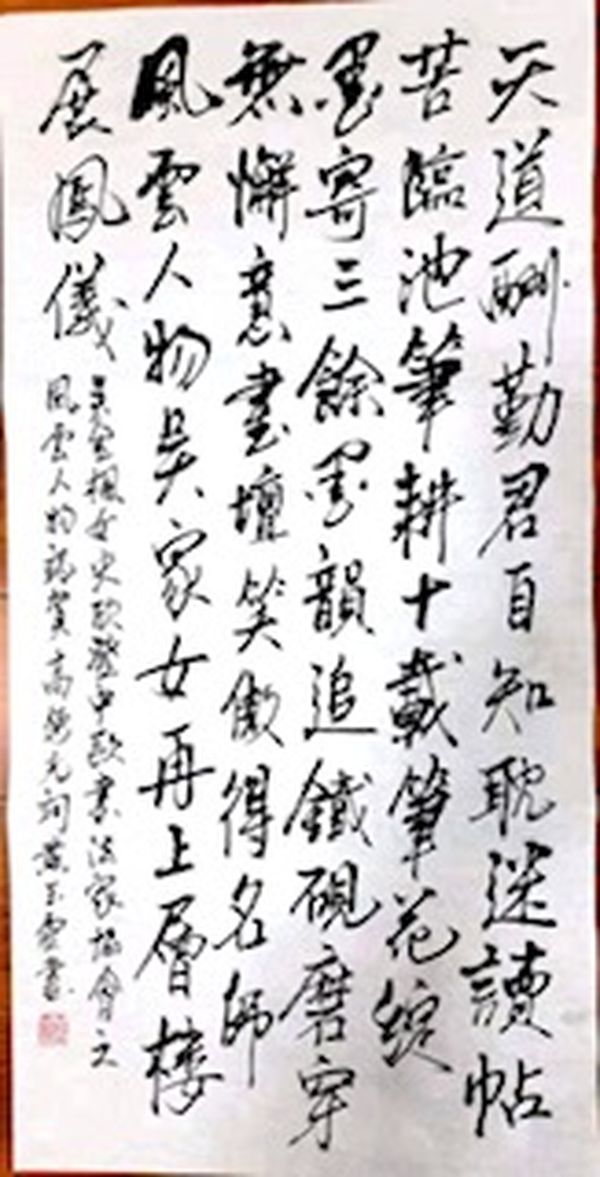 天道酬勤君自知耽迷讀帖
苦臨池筆耕十載筆花綻
墨寄三餘墨韻追鐵硯磨穿
無懈意書壇笑傲得名師
風雲人物吴家女再上層樓
展鳳儀
女史欣登中欧書法家協會之
風雲人物誌賀高